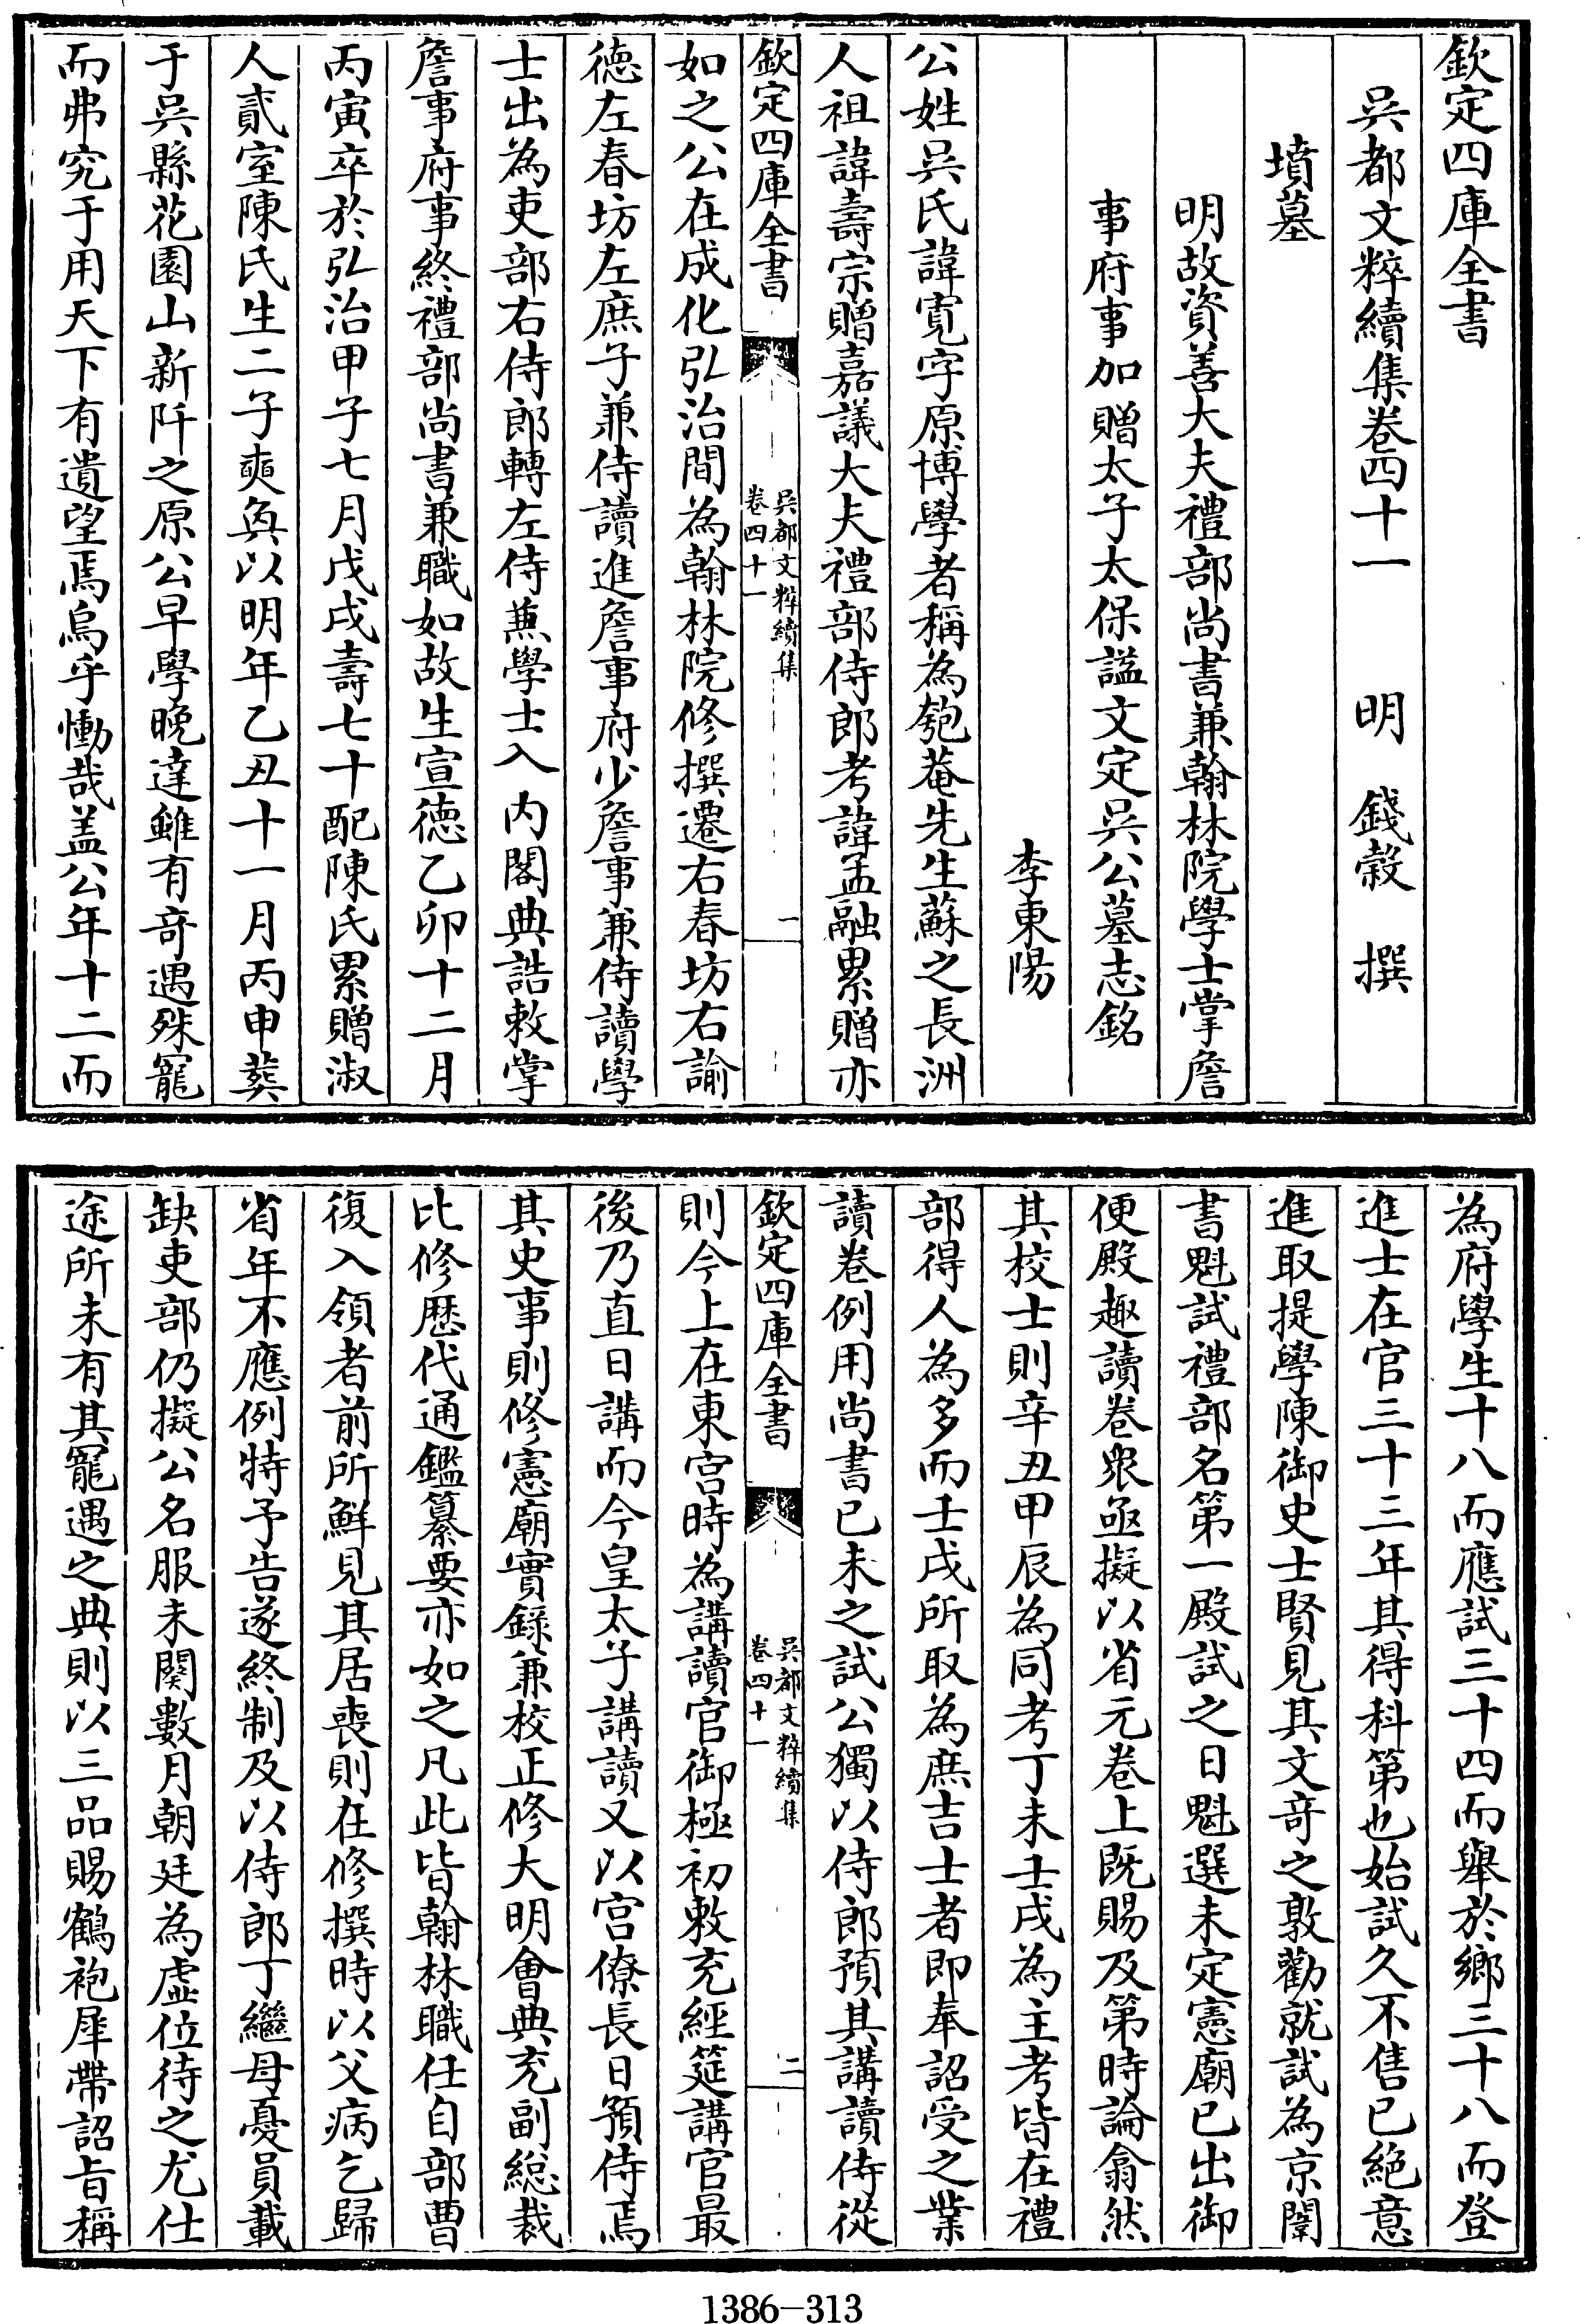 欽定四庫全書
吳都文粹續集卷四十一　明　錢穀　撰
墳墓
明故資善大夫禮部尚書兼翰林院學士掌詹
事府事加贈太子太保諡文定吳公墓志銘
李東陽
公姓吳氏諱寛字原博學者稱為匏菴先生蘇之長洲
人祖諱壽宗贈嘉議大夫禮部侍郎考諱孟融累贈亦
欽定四庫全書
吳都文粹續集
卷四十一
一
如之公在成化弘治間為翰林院修撰遷右春坊右諭
徳左春坊左庶子兼侍讀進詹事府少詹事兼侍讀學
士出為吏部右侍郎轉左侍兼學士入　內閣典誥敕掌
詹事府事終禮部尚書兼職如故生宣徳乙卯十二月
丙寅卒於弘治甲子七月戊戌壽七十配陳氏累贈淑
人貳室陳氏生二子奭奐以明年乙丑十一月丙申葬
于吳縣花園山新阡之原公早學晚達雖有奇遇殊寵
而弗究于用天下有遺望焉烏乎慟哉盖公年十二而
為府學生十八而應試三十四而舉於鄉三十八而登
進士在官三十三年其得科第也始試久不售已絕意
進取提學陳御史士賢見其文竒之敦勸就試為京闈
書魁試禮部名第一殿試之日魁選未定憲廟已出御
便殿趣讀卷衆亟擬以省元卷上既賜及第時論翕然
其校士則辛丑甲辰為同考丁未壬戌為主考皆在禮
部得人為多而壬戌所取為庶吉士者即奉詔受之業
讀卷例用尚書已未之試公獨以侍郎預其講讀侍從
欽定四庫全書
吳都文粹續集
卷四十一
二
則今上在東宮時為講讀官御極初敕充經筵講官最
後乃直日講而今皇太子講讀又以宮僚長日預侍焉
其史事則修憲廟實錄兼校正修大明會典充副總裁
比修歴代通鑑纂要亦如之凡此皆翰林職任自部曹
復入領者前所鮮見其居喪則在修撰時以父病乞歸
省年不應例特予告遂終制及以侍郎丁繼母憂員載
缺吏部仍擬公名服未闋數月朝廷為虛位待之尤仕
途所未有其寵遇之典則以三品賜鶴袍犀帶詔旨稱
1386-313